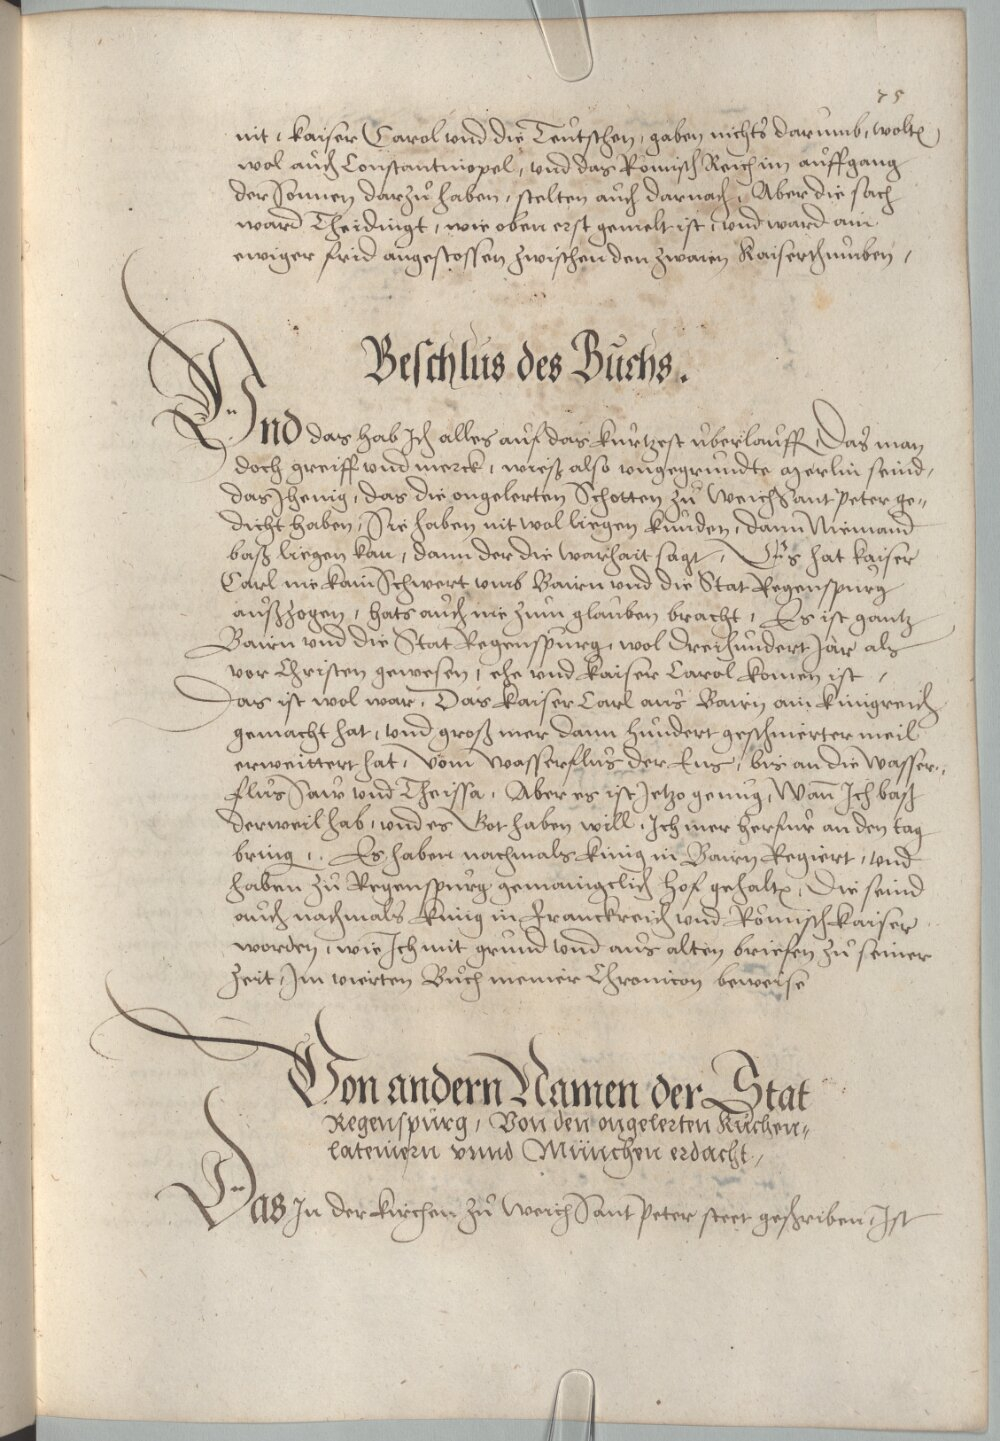 75
nit, kaiser Carol und die Teutschen, gaben nichts darumb, wolt
wol auch Constantinopel, und das Römisch Reich im auffgang
der Sonnen darzů haben, stelten auch darnach, Aber die sach
ward Theidingt, wie oben erst gemelt ist, und ward ain
ewiger frid angestossen zwischen den zwaien Kaiserthumben,
Beschlus des Buchs.
Und das hab Ich alles auf das kürtzest überlauff, Das man
doch greiff und merck, wie es also ungegründte merlin seind,
das Jhenig, das die ongelerten Schotten zů Weich Sant Peter ge=
dicht haben, Sie haben nit wol liegen künden, dann Niemand
baß liegen kan, dann der die warhait sagt, Es hat kaiser
Carl nie kain Schwert umb Bairn und die Stat Regenspurg
außzogen, hats auch nie zum glauben bracht, Es ist gantz
Bairn und die Stat Regenspurg, wol dreihundert Jar als
vor Christen gewesen, ehe und kaiser Carol komen ist,
Das ist wol war, Das kaiser Carl aus Bairn ain Künigreich
gemacht hat, und groß mer dann hundert geschmierter meil
erweittert hat, Vom wasserflus der Ens, bis an die wasser=
flus Saw und Theissa, Aber es ist Jetzo genug, Wan Ich baß
derweil hab, und es Got haben will, Ich mer herfur an den tag
bring, Es haben nachmals Künig in Bairn Regiert, und
haben zů Regenspurg gemainigclich Hof gehalt, Die seind
auch nachmals Künig in Franckreich und Römisch kaiser
worden, wie Ich mit grund und aus alten briefen zů seiner
zeit, Im vierten Buch meiner Chronicon beweise
Von andern Namen der Stat
Regenspurg, Von den ongelerten Kuchen=
lateinern unnd München erdacht,
Das In der kirchen zů Weich Sant Peter steet geschriben, Ist